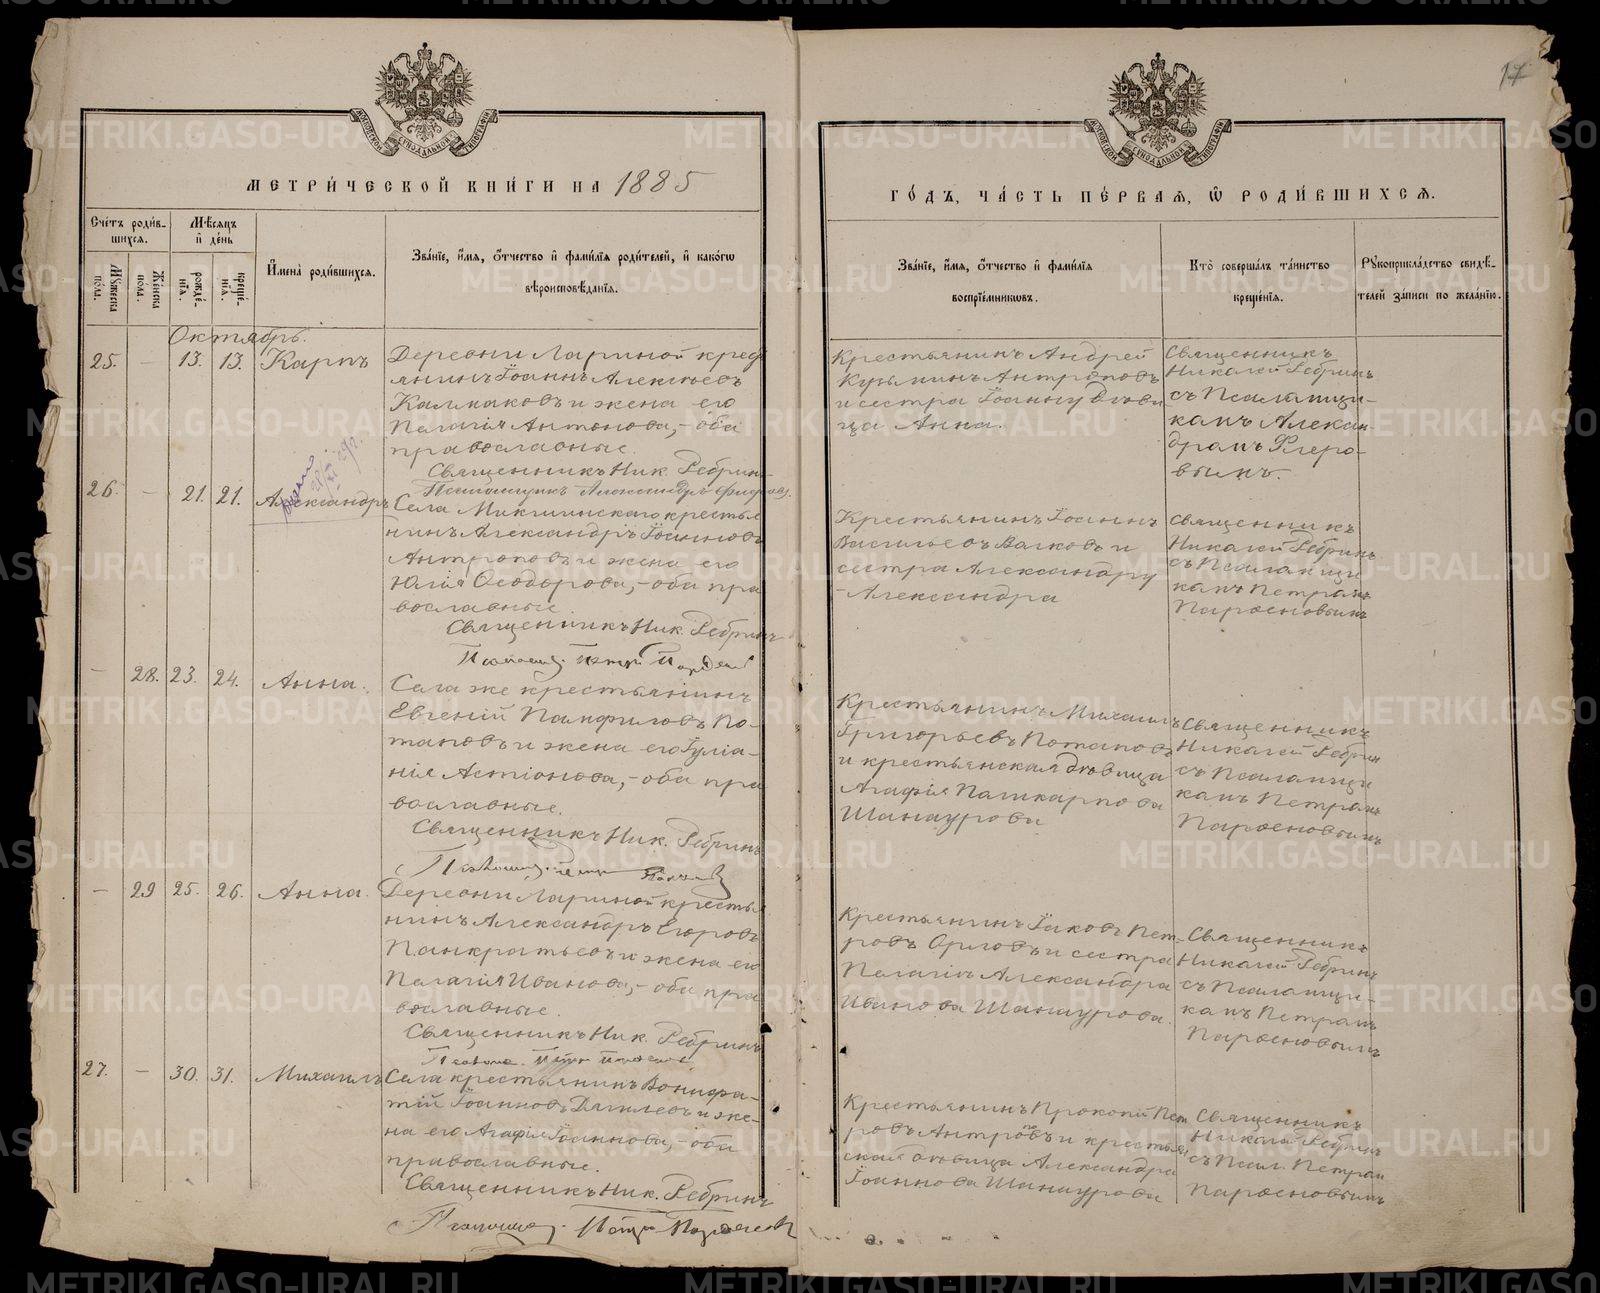 17
МОСКОВСКОЙ СѴНОДАЛЬНОЙ ТИПОГРАФІИ
МОСКОВСКОЙ СѴНОДАЛЬНОЙ ТИПОГРАФІИ
МЕТРИ́ЧЕСКОЙ КНИ́ГИ НА 1885
ГО́ДЪ, ЧА́СТЬ ПЕ́РВАЯ, Ѡ҆ РОДИ́ВШИХСѦ.
Сче́тъ роди́в-
шихсѧ.
Мѣ́сѧцъ
и҆ де́нь
И҆мена̀ роди́вшихсѧ.
Зва́нїе, и҆́мѧ, ѻ҆́тчество и҆ фами́лїѧ роди́телей, и҆ како́гѡ
вѣроисповѣ́данїѧ.
Мꙋ́жеска
по́ла.
Же́нска
по́ла.
рожде́-
нїѧ.
креще́-
нїѧ.
Зва́нїе, и҆́мѧ, ѻ҆́тчество и҆ фами́лїѧ
воспрїе́мникѡвъ.
Кто̀ соверша́лъ та́инство
креще́нїѧ.
Рꙋкоприкла́дство свидѣ́-
телей за́писи по жела́нїю.
Октябрь.
25. — 13. 13. Карпъ
Деревни Лариной крест
янинъ Іоаннъ Алексѣевъ
Калмаковъ и жена его
Пелагія Антонова, – оба
православные.
Священникъ Ник. Ребрин
Псаломщикъ Александръ
Крестьянинъ Андрей
Кузьминъ Антроповъ
и сестра Іоанну Дѣви
ца Анна.
Священникъ
Николай Ребринъ
съ Псаломщи-
комъ Алексан-
дромъ Флеро-
вымъ.
26. — 21. 21. Александръ
Села Микшинскаго крестья
нинъ Александръ Іоанновъ
Антроповъ и жена его
Юлія Ѳеодорова, – оба пра
вославные.
Священникъ Ник. Ребринъ
Крестьянинъ Іоаннъ
Васильевъ Валковъ и
сестра Александру
Александра
Священникъ
Николай Ребринъ
съ Псаломщи
комъ Петромъ
Парѳеновымъ
— 28. 23. 24. Анна.
Села же крестьянинъ
Евгеній Панфиловъ По-
таповъ и жена его Іуліа-
нія Астіонова, – оба пра
вославные.
Священникъ Ник. Ребринъ
Крестьянинъ Михаилъ
Григорьевъ Потаповъ
и крестьянская дѣвица
Агафія Паликарпова
Шанаурова
Священникъ
Николай Ребрин
съ Псаломщи
комъ Петромъ
Парѳеновымъ
— 29 25. 26. Анна.
Деревни Лариной крестья
нинъ Александръ Егоровъ
Панкратьевъ и жена его
Пелагія Иванова, – оба пра
вославные.
Священникъ Ник. Ребринъ
Крестьянинъ Іаковъ Пет-
ровъ Орловъ и сестра
Пелагіи Александра
Иванова Шанаурова.
Священникъ
Николай Ребринъ
съ Псаломщи-
комъ Петромъ
Парѳеновымъ
27. — 30. 31. Михаилъ
Села крестьянинъ Вонифа-
тій Іоанновъ Данилевъ и же-
на его Агафія Іоаннова, – оба
православные.
Священникъ Ник. Ребринъ
Крестьянинъ Прокопій Пет
ровъ Антроповъ и крестьян
ская дѣвица Александра
Іоаннова Шанаурова
Священникъ
Николай Ребринъ
съ Псал. Петром
Парѳеновымъ
METRIKI.GASO-URAL.RU